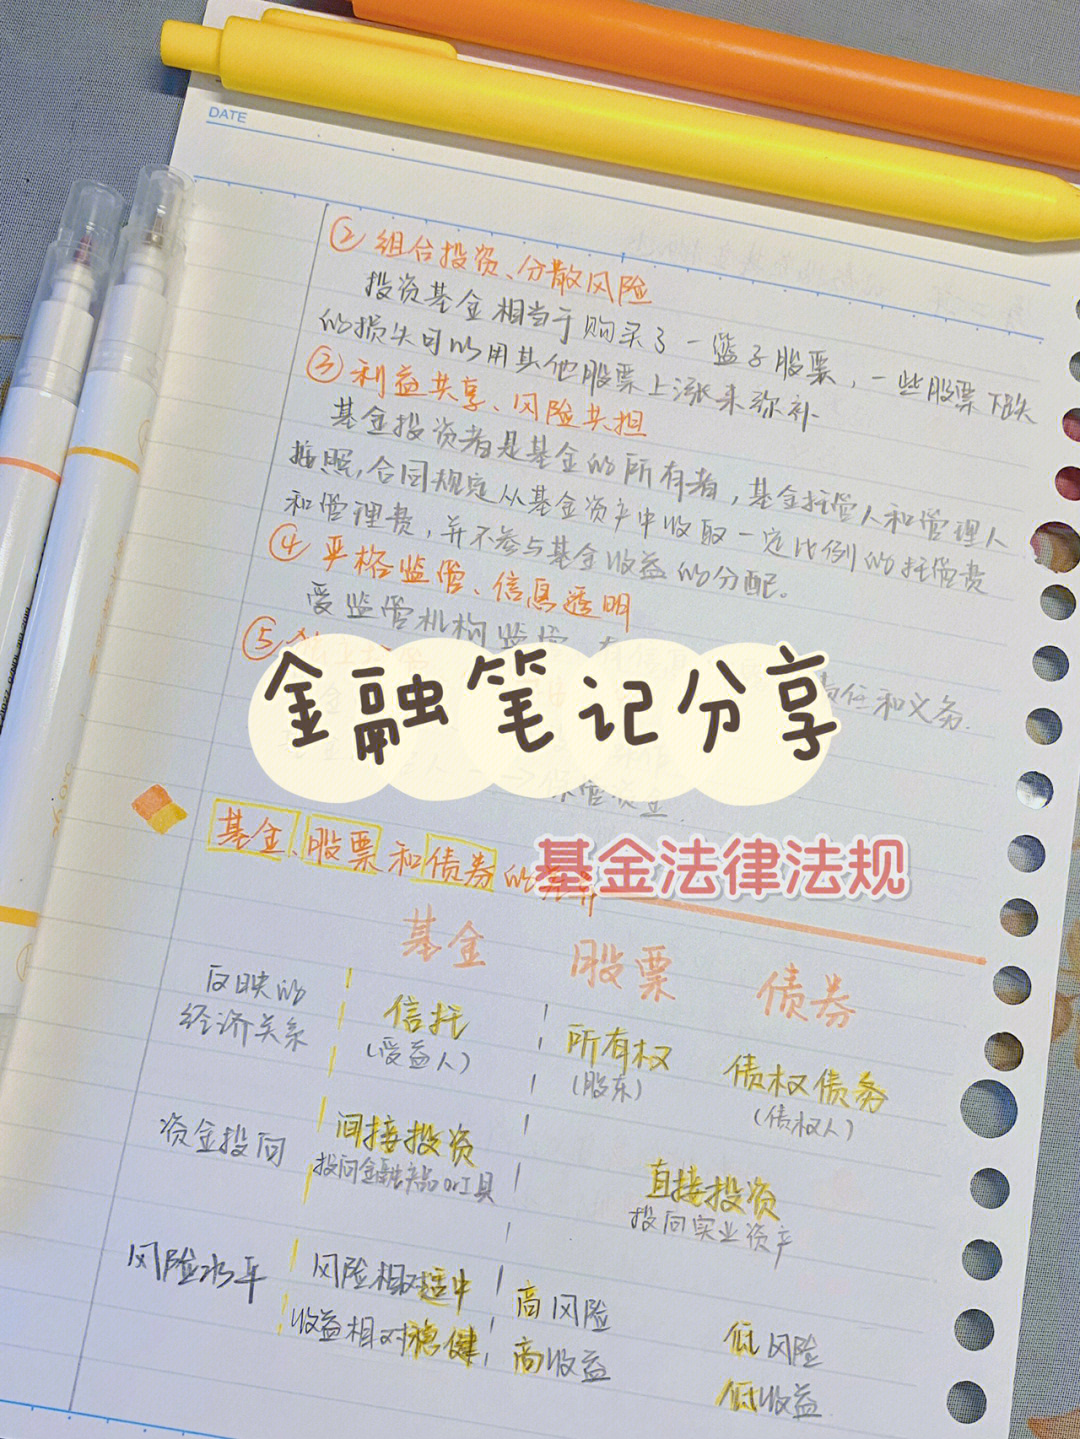 DATE
② 组合投资、分散风险
投资基金相当于购买了一篮子股票，一些股票下跌
的损失可以用其他股票上涨来弥补
③ 利益共享、风险共担
基金投资者是基金的所有者，基金托管人和管理人
按照，合同规定从基金资产中收取一定比例的托管费
和管理费，并不参与基金收益的分配。
④ 严格监管、信息透明
受监管机构监管
⑤
责任和义务.
金融笔记分享
保管资金.
基金、股票和债券的
基金法律法规
基金 股票 债券
反映的
经济关系
信托
(受益人)
所有权
(股东)
债权债务
(债权人)
资金投向
间接投资
投向金融产品or工具
直接投资
投向实业资产
风险水平
风险相对适中
收益相对稳健
高风险
高收益
低风险
低收益